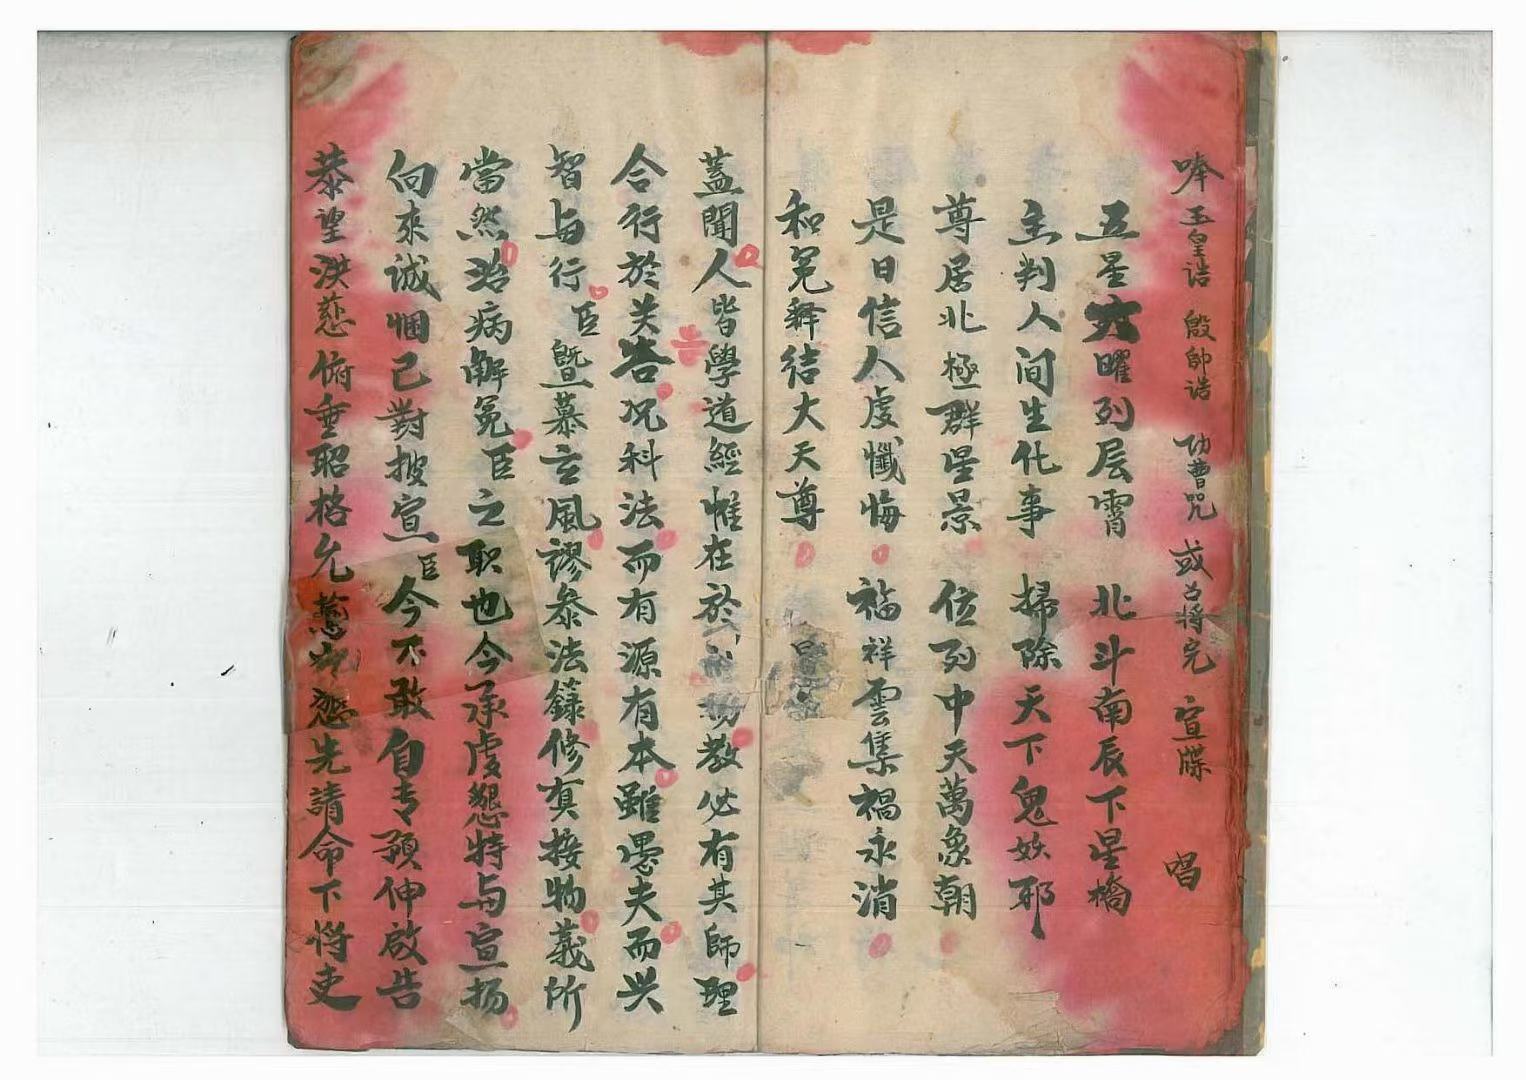 唪玉皇诰 殷帥诰 功曹咒 或召将完 宣牒 唱
五星六曜列层霄 北斗南辰下星橋
主判人间生化事 掃除天下鬼妖邪
尊居北極群星景 位列中天萬象朝
是日信人虔懺悔 福祥雲集禍永消
和冤释结大天尊
蓋聞人皆學道經惟在於揚教必有其師理
合行於关告况科法而有源有本雖愚夫而兴
智与行臣暨慕玄風謬叅法籙修真接物義所
當然治病解冤臣之职也今承虔懇特与宣扬
向來诚悃己對披宣臣今不敢自专預伸啟告
恭望洪慈俯垂昭格允先請命下将吏